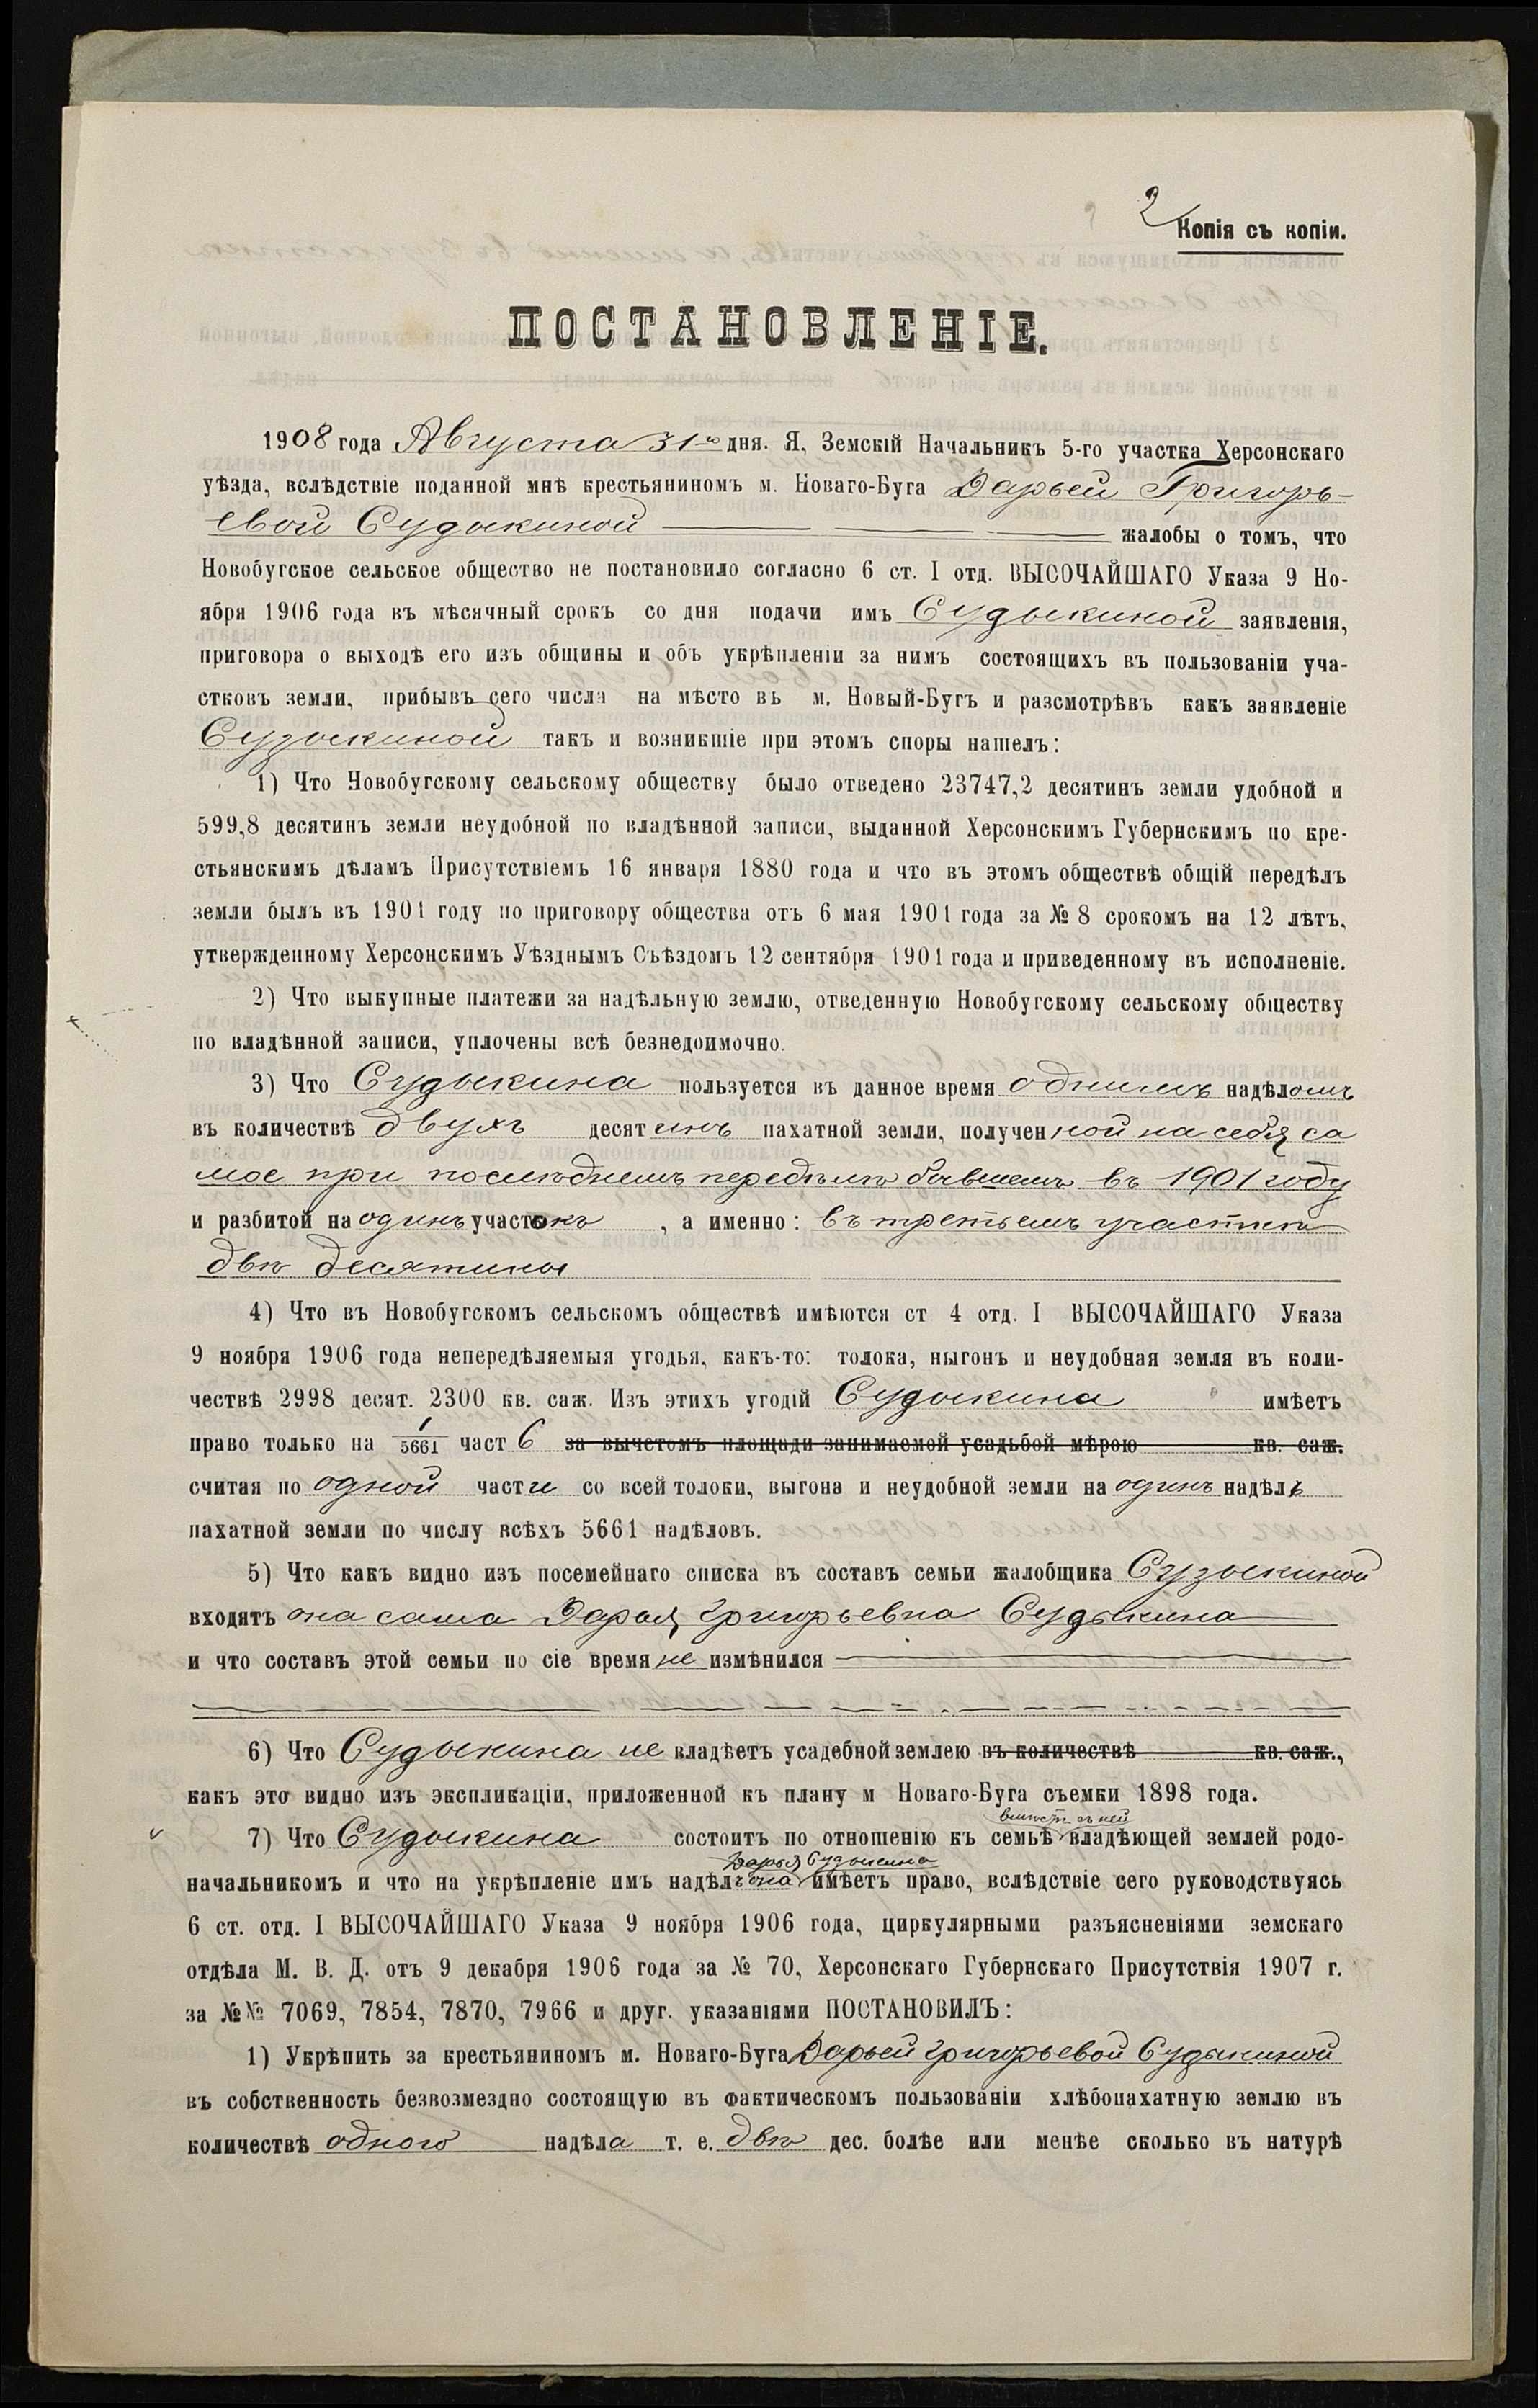 2
Копія съ копіи.
ПОСТАНОВЛЕНІЕ.
1908 года Августа 31го дня. Я, Земскій Начальникъ 5-го участка Херсонскаго
уѣзда, вслѣдствіе поданной мнѣ крестьяниномъ м. Новаго-Буга Дарьей Григорь-
евой Судыкиной жалобы о томъ, что
Новобугское сельское общество не постановило согласно 6 ст. I отд. ВЫСОЧАЙШАГО Указа 9 Но-
ября 1906 года въ мѣсячный срокъ со дня подачи имъ Судыкиной заявленія,
приговора о выходѣ его изъ общины и объ укрѣпленіи за нимъ состоящихъ въ пользованіи уча-
стковъ земли, прибывъ сего числа на мѣсто въ м. Новый-Бугъ и разсмотрѣвъ какъ заявленіе
Судыкиной такъ и возникшіе при этомъ споры нашелъ:
1) Что Новобугскому сельскому обществу было отведено 23747,2 десятинъ земли удобной и
599,8 десятинъ земли неудобной по владѣнной записи, выданной Херсонскимъ Губернскимъ по кре-
стьянскимъ дѣламъ Присутствіемъ 16 января 1880 года и что въ этомъ обществѣ общій передѣлъ
земли былъ въ 1901 году по приговору общества отъ 6 мая 1901 года за № 8 срокомъ на 12 лѣтъ,
утвержденному Херсонскимъ Уѣзднымъ Съѣздомъ 12 сентября 1901 года и приведенному въ исполненіе.
2) Что выкупные платежи за надѣльную землю, отведенную Новобугскому сельскому обществу
по владѣнной записи, уплочены всѣ безнедоимочно.
3) Что Судыкина пользуется въ данное время однимъ надѣломъ
въ количествѣ двухъ десятинъ пахатной земли, полученной на себя са
мое при послѣднемъ передѣлѣ бывшемъ въ 1901 году
и разбитой на одинъ участокъ, а именно: въ третьемъ участкѣ
двѣ десятины
4) Что въ Новобугскомъ сельскомъ обществѣ имѣются ст 4 отд. I ВЫСОЧАЙШАГО Указа
9 ноября 1906 года непередѣляемыя угодья, какъ-то: толока, выгонъ и неудобная земля въ коли-
чествѣ 2998 десят. 2300 кв. саж. Изъ этихъ угодій Судыкина имѣетъ
право только на 1/5661 часть за вычетомъ площади занимаемой усадьбой мѣрою кв. саж.
считая по одной части со всей толоки, выгона и неудобной земли на одинъ надѣлъ
пахатной земли по числу всѣхъ 5661 надѣловъ.
5) Что какъ видно изъ посемейнаго списка въ составъ семьи жалобщика Судыкиной
входятъ она сама Дарья Григорьевна Судыкина
и что составъ этой семьи по сіе время не измѣнился
6) Что Судыкина не владѣетъ усадебной землею въ количествѣ кв. саж.,
какъ это видно изъ экспликаціи, приложенной къ плану м Новаго-Буга съемки 1898 года.
вмѣстѣ съ ней
7) Что Судыкина состоитъ по отношенію къ семьѣ владѣющей землей родо-
Дарья Судыкина
начальникомъ и что на укрѣпленіе имъ надѣлъ она имѣетъ право, вслѣдствіе сего руководствуясь
6 ст. отд. I ВЫСОЧАЙШАГО Указа 9 ноября 1906 года, циркулярными разъясненіями земскаго
отдѣла М. В. Д. отъ 9 декабря 1906 года за № 70, Херсонскаго Губернскаго Присутствія 1907 г.
за №№ 7069, 7854, 7870, 7966 и друг. указаніями ПОСТАНОВИЛЪ:
1) Укрѣпить за крестьяниномъ м. Новаго-Буга Дарьей Григорьевой Судыкиной
въ собственность безвозмездно состоящую въ фактическомъ пользованіи хлѣбопахатную землю въ
количествѣ одного надѣла т. е. двѣ дес. болѣе или менѣе сколько въ натурѣ